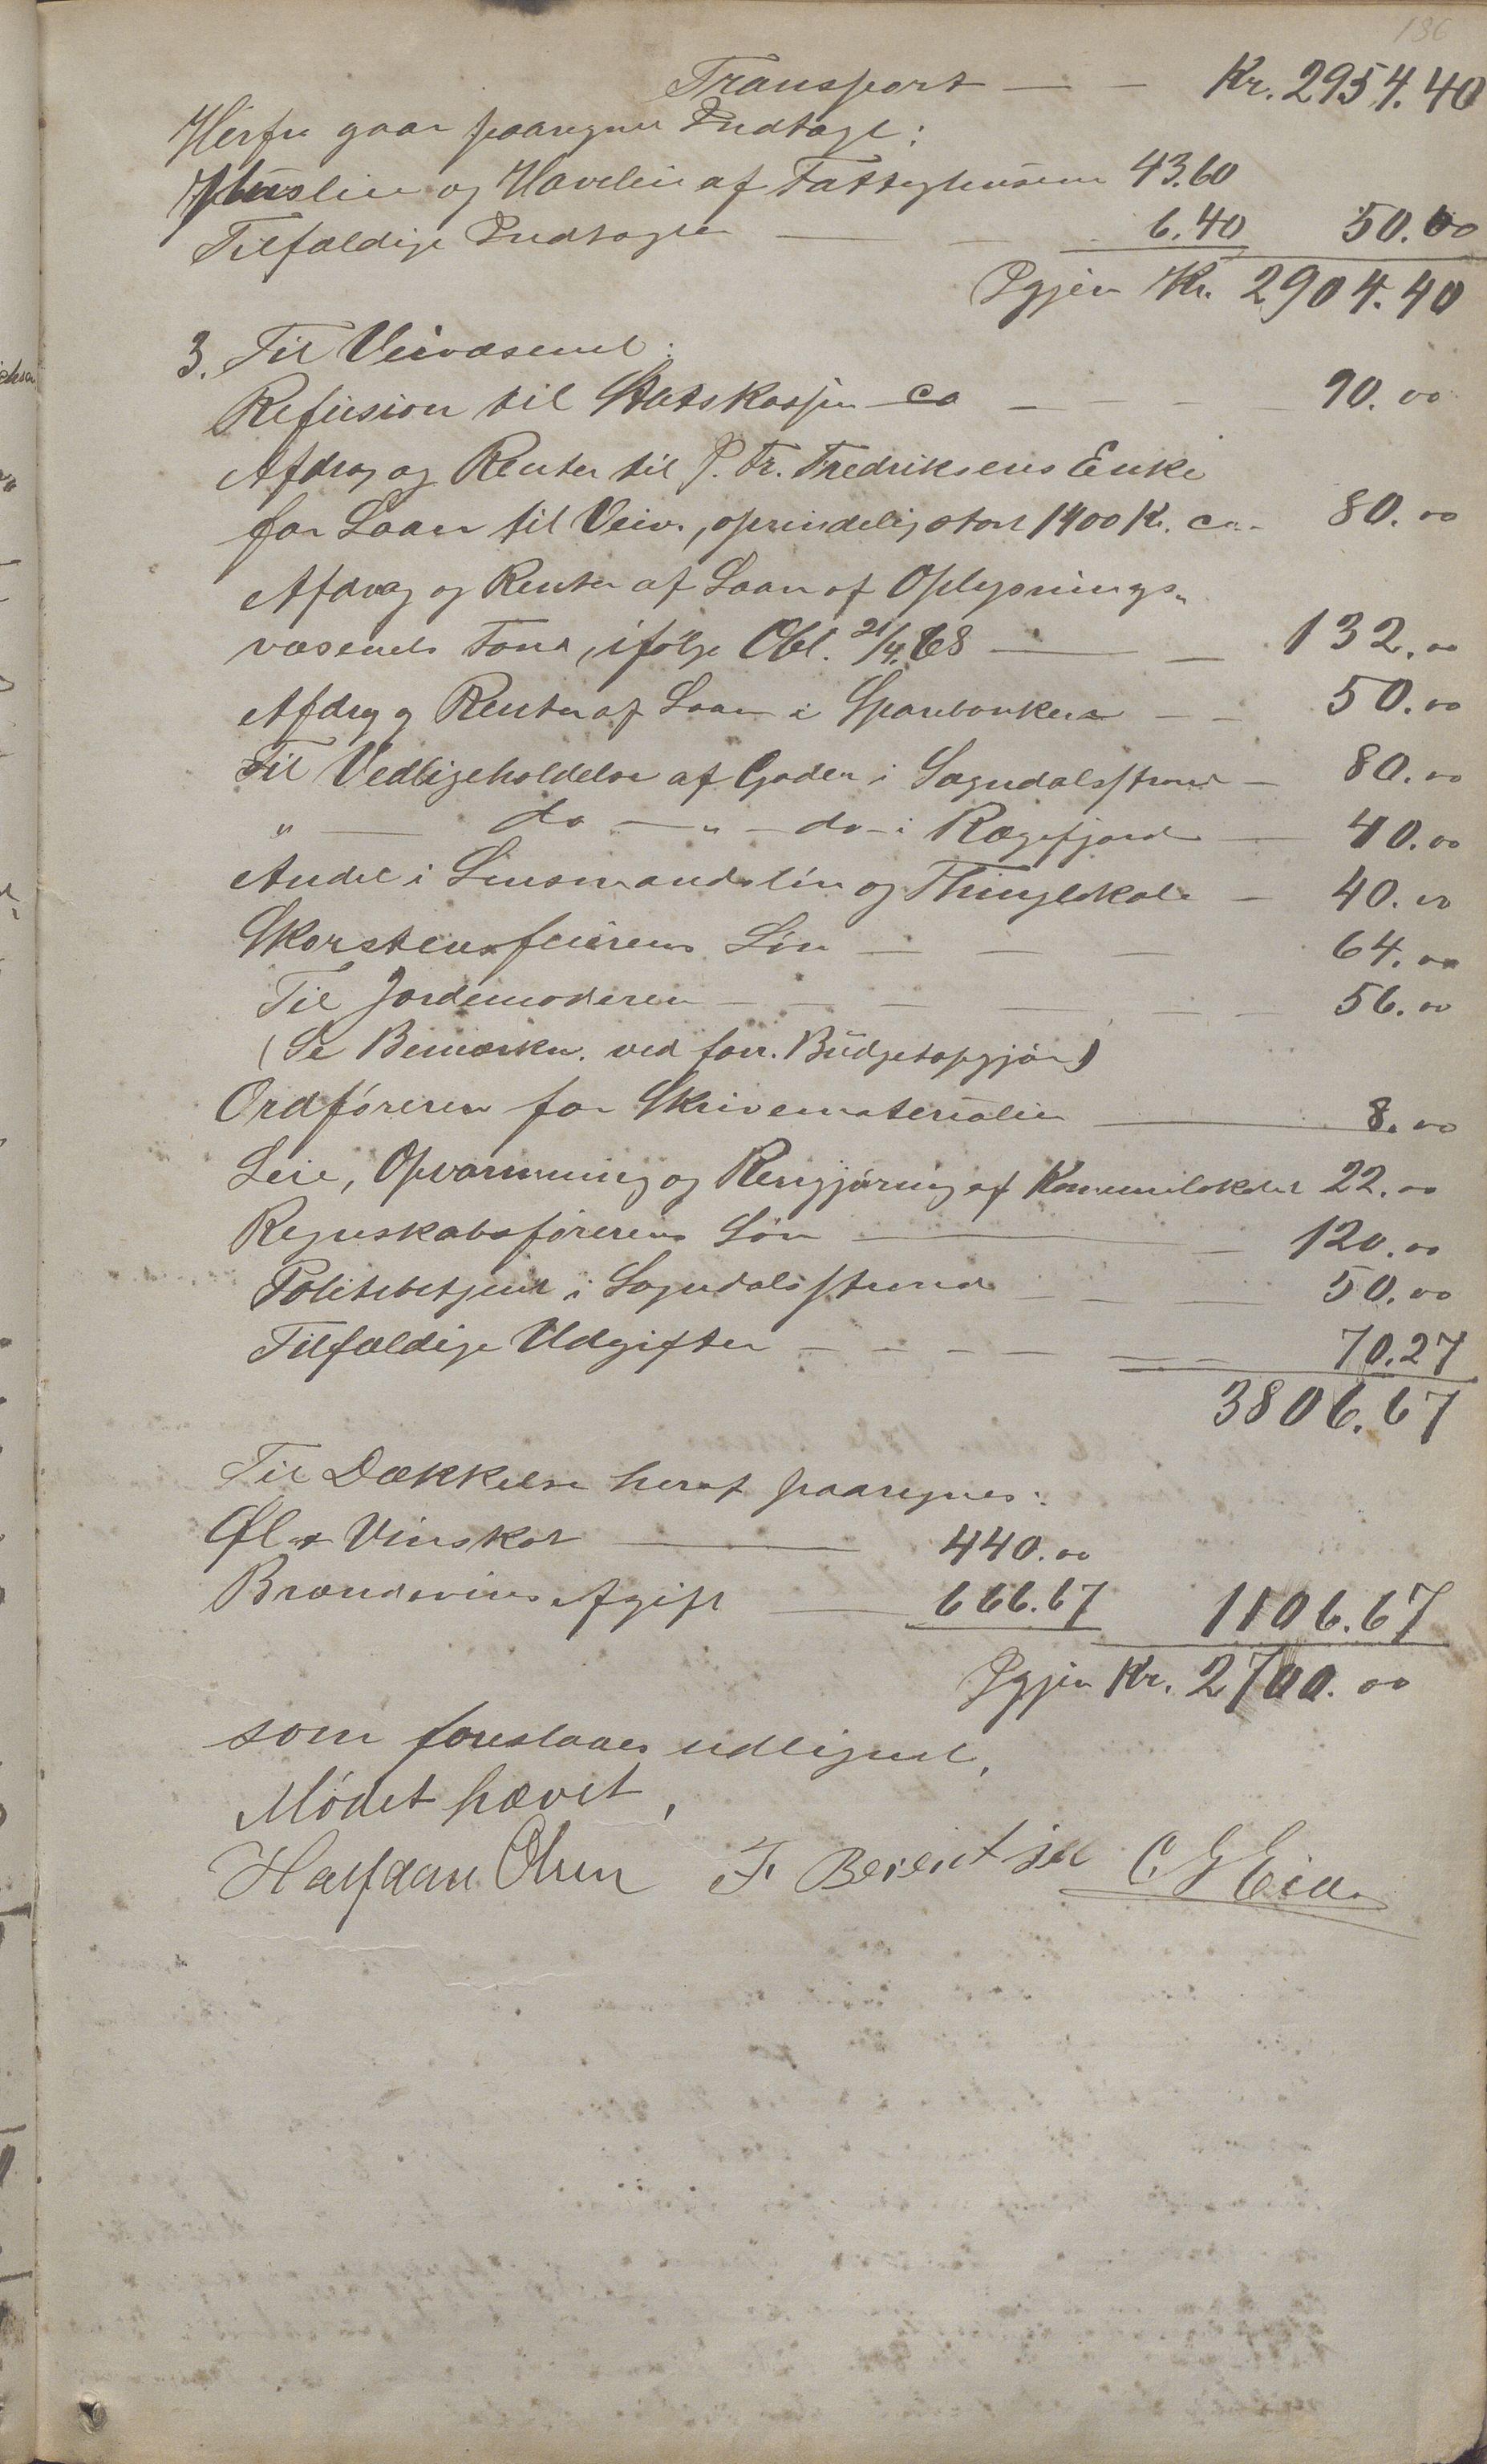 186
Transport — — Kr. 2954.40
Herfra gaar paaregnet Indtægt:
Husleie og Haveleie af Fattighusene 43.60
Tilfældige Indtægter — 6.40 50.00
Igjen Kr. 2904.40
3. Til Veivæsenet:
Refusion til Statskassen ca — — 90.00
Afdrag og Renter til P. Fr. Fredriksens Enke
for Laan til Veiv., oprindelig stort 1400 Kr. ca. 80.00
Afdrag og Renter af Laan af Oplysnings-
væsenets Fond, ifølge Obl. 21/4 68 — — 132.00
Afdrag og Renter af Laan i Sparebanken — — 50.00
Til Vedligeholdelse af Gaden i Sogndalsstrand — 80.00
" — do — " — do — i Rægefjord — 40.00
Andel i Lensmandsløn og Thinglokale — 40.00
Skorstensfeierens Løn — — — 64.00
Til Jordemoderen — — — — — — 56.00
(Se Bemærkn. ved forr. Budgetopgjør)
Ordføreren for Skrivematerialier — 8.00
Leie, Opvarmning og Rengjøring af Kommunelokalet 22.00
Regnskabsførerens Løn — — 120.00
Politibetjent i Sogndalsstrand — — — 50.00
Tilfældige Udgifter — — — — — — 70.27
3806.67
Til Dækkelse heraf paaregnes:
Øl & Vinskat — 440.00
Brændevins Afgift — 666.67 1106.67
Igjen Kr. 2700.00
som foreslaaes udlignet.
Mødet hævet,
Halfdan Olsen F Berentsen C G Eia